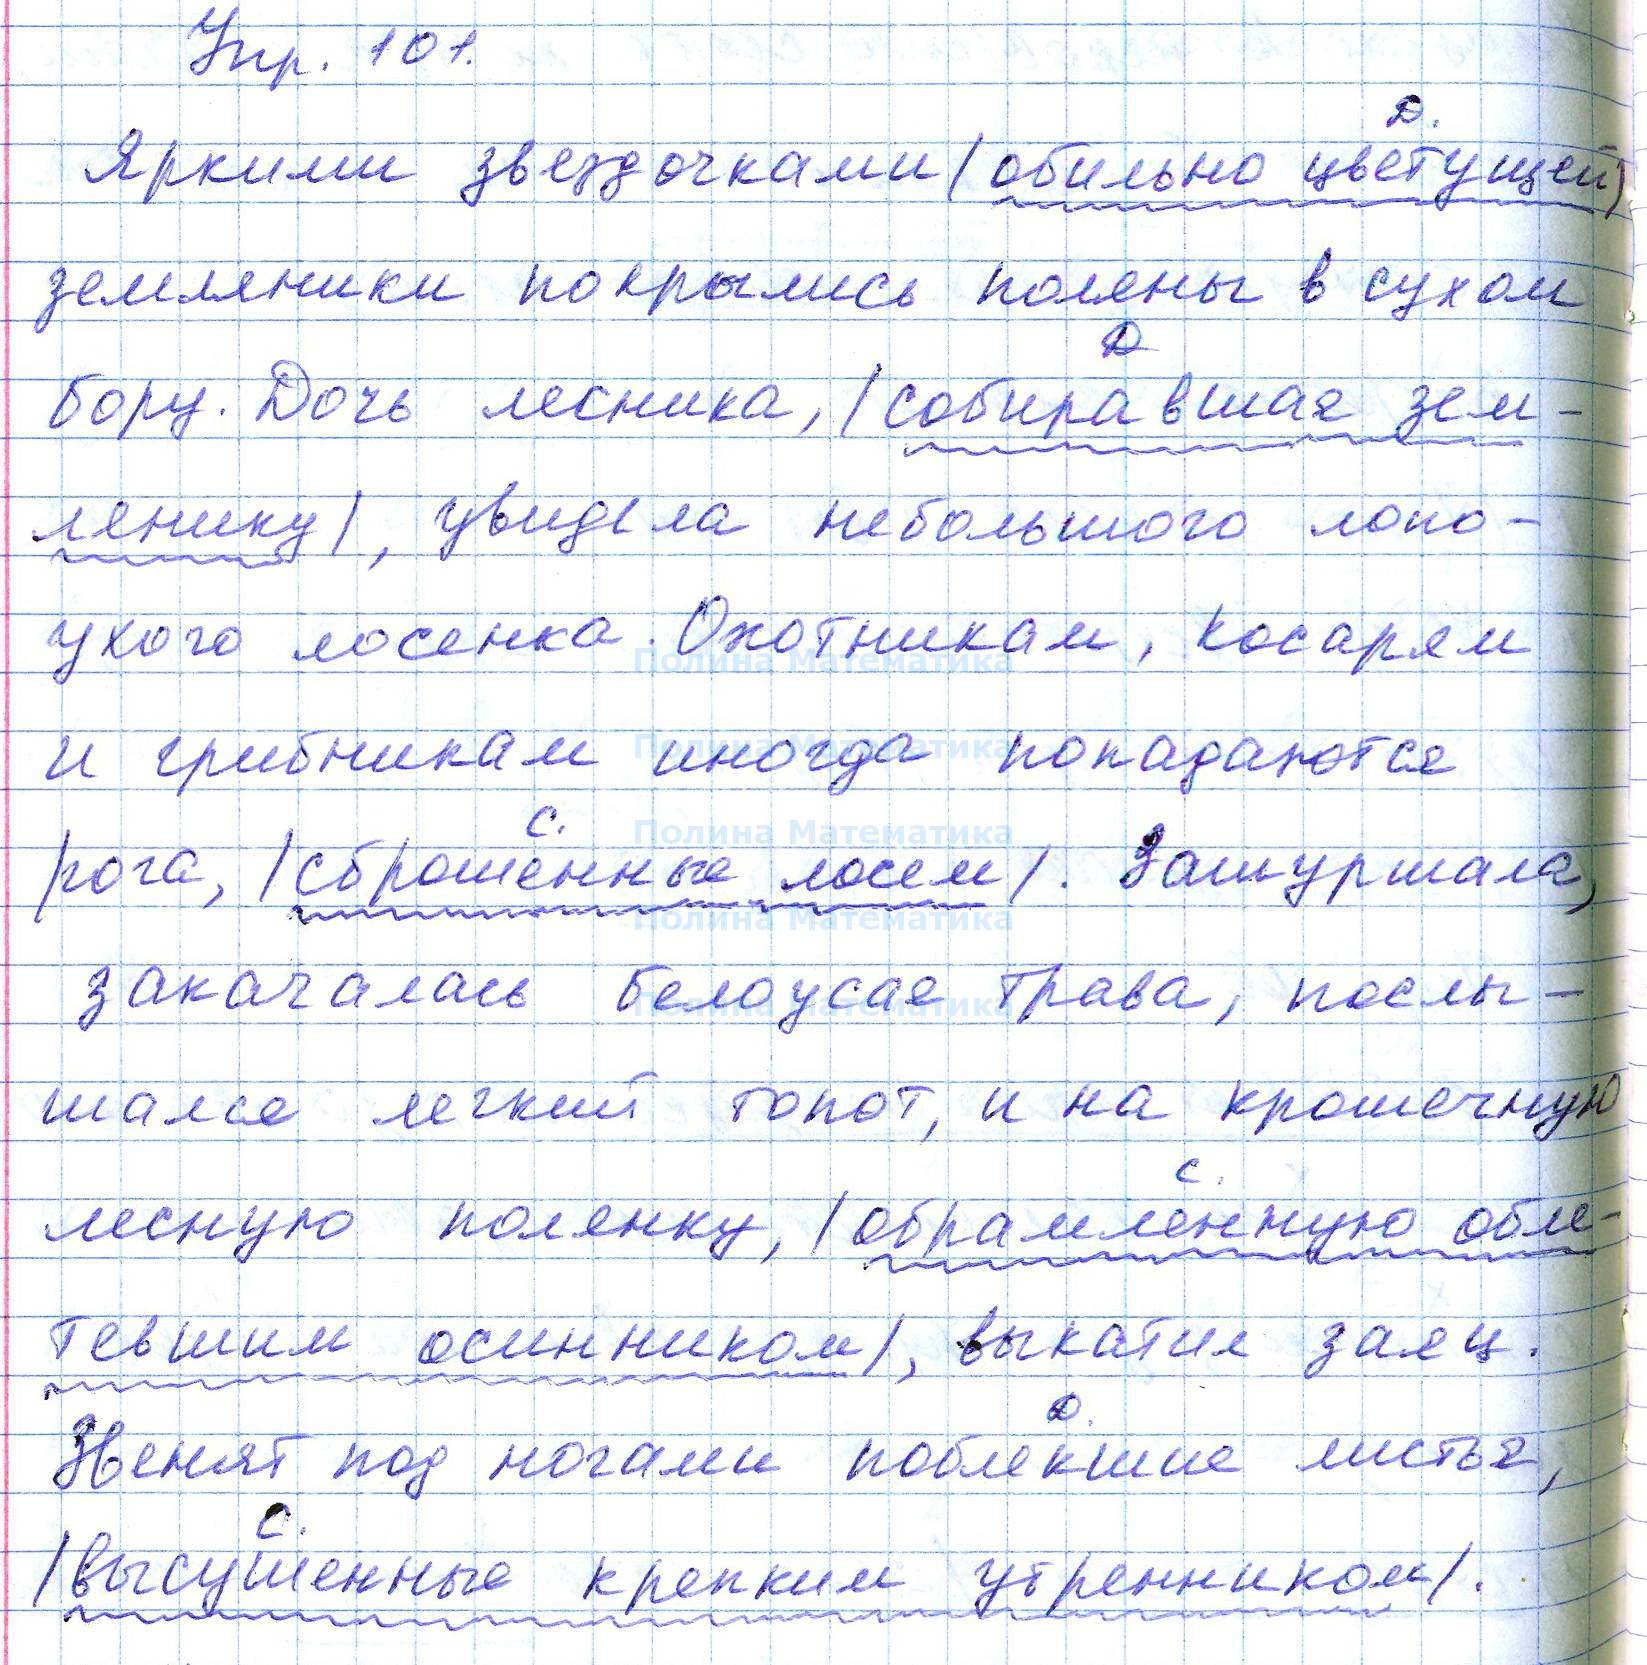 Упр. 101.
Д.
Яркими звездочками |обильно цветущей|
земляники покрылись поляны в сухом
Д
бору. Дочь лесника, |собиравшая зем-
лянику|, увидела небольшого лопо-
ухого лосенка. Охотникам, косарям
Полина Математика
и грибникам иногда попадаются
Полина Математика
С.
Полина Математика
рога, |сброшенные лосем|. Зашуршала,
Полина Математика
закачалась белоусая трава, послы-
Полина Математика
шался легкий топот, и на крошечную
С.
лесную полянку, |обрамленную обле-
тевшим осинником|, выкатил заяц.
Д.
Звенят под ногами поблекшие листья,
С.
|высушенные крепким утренником|.